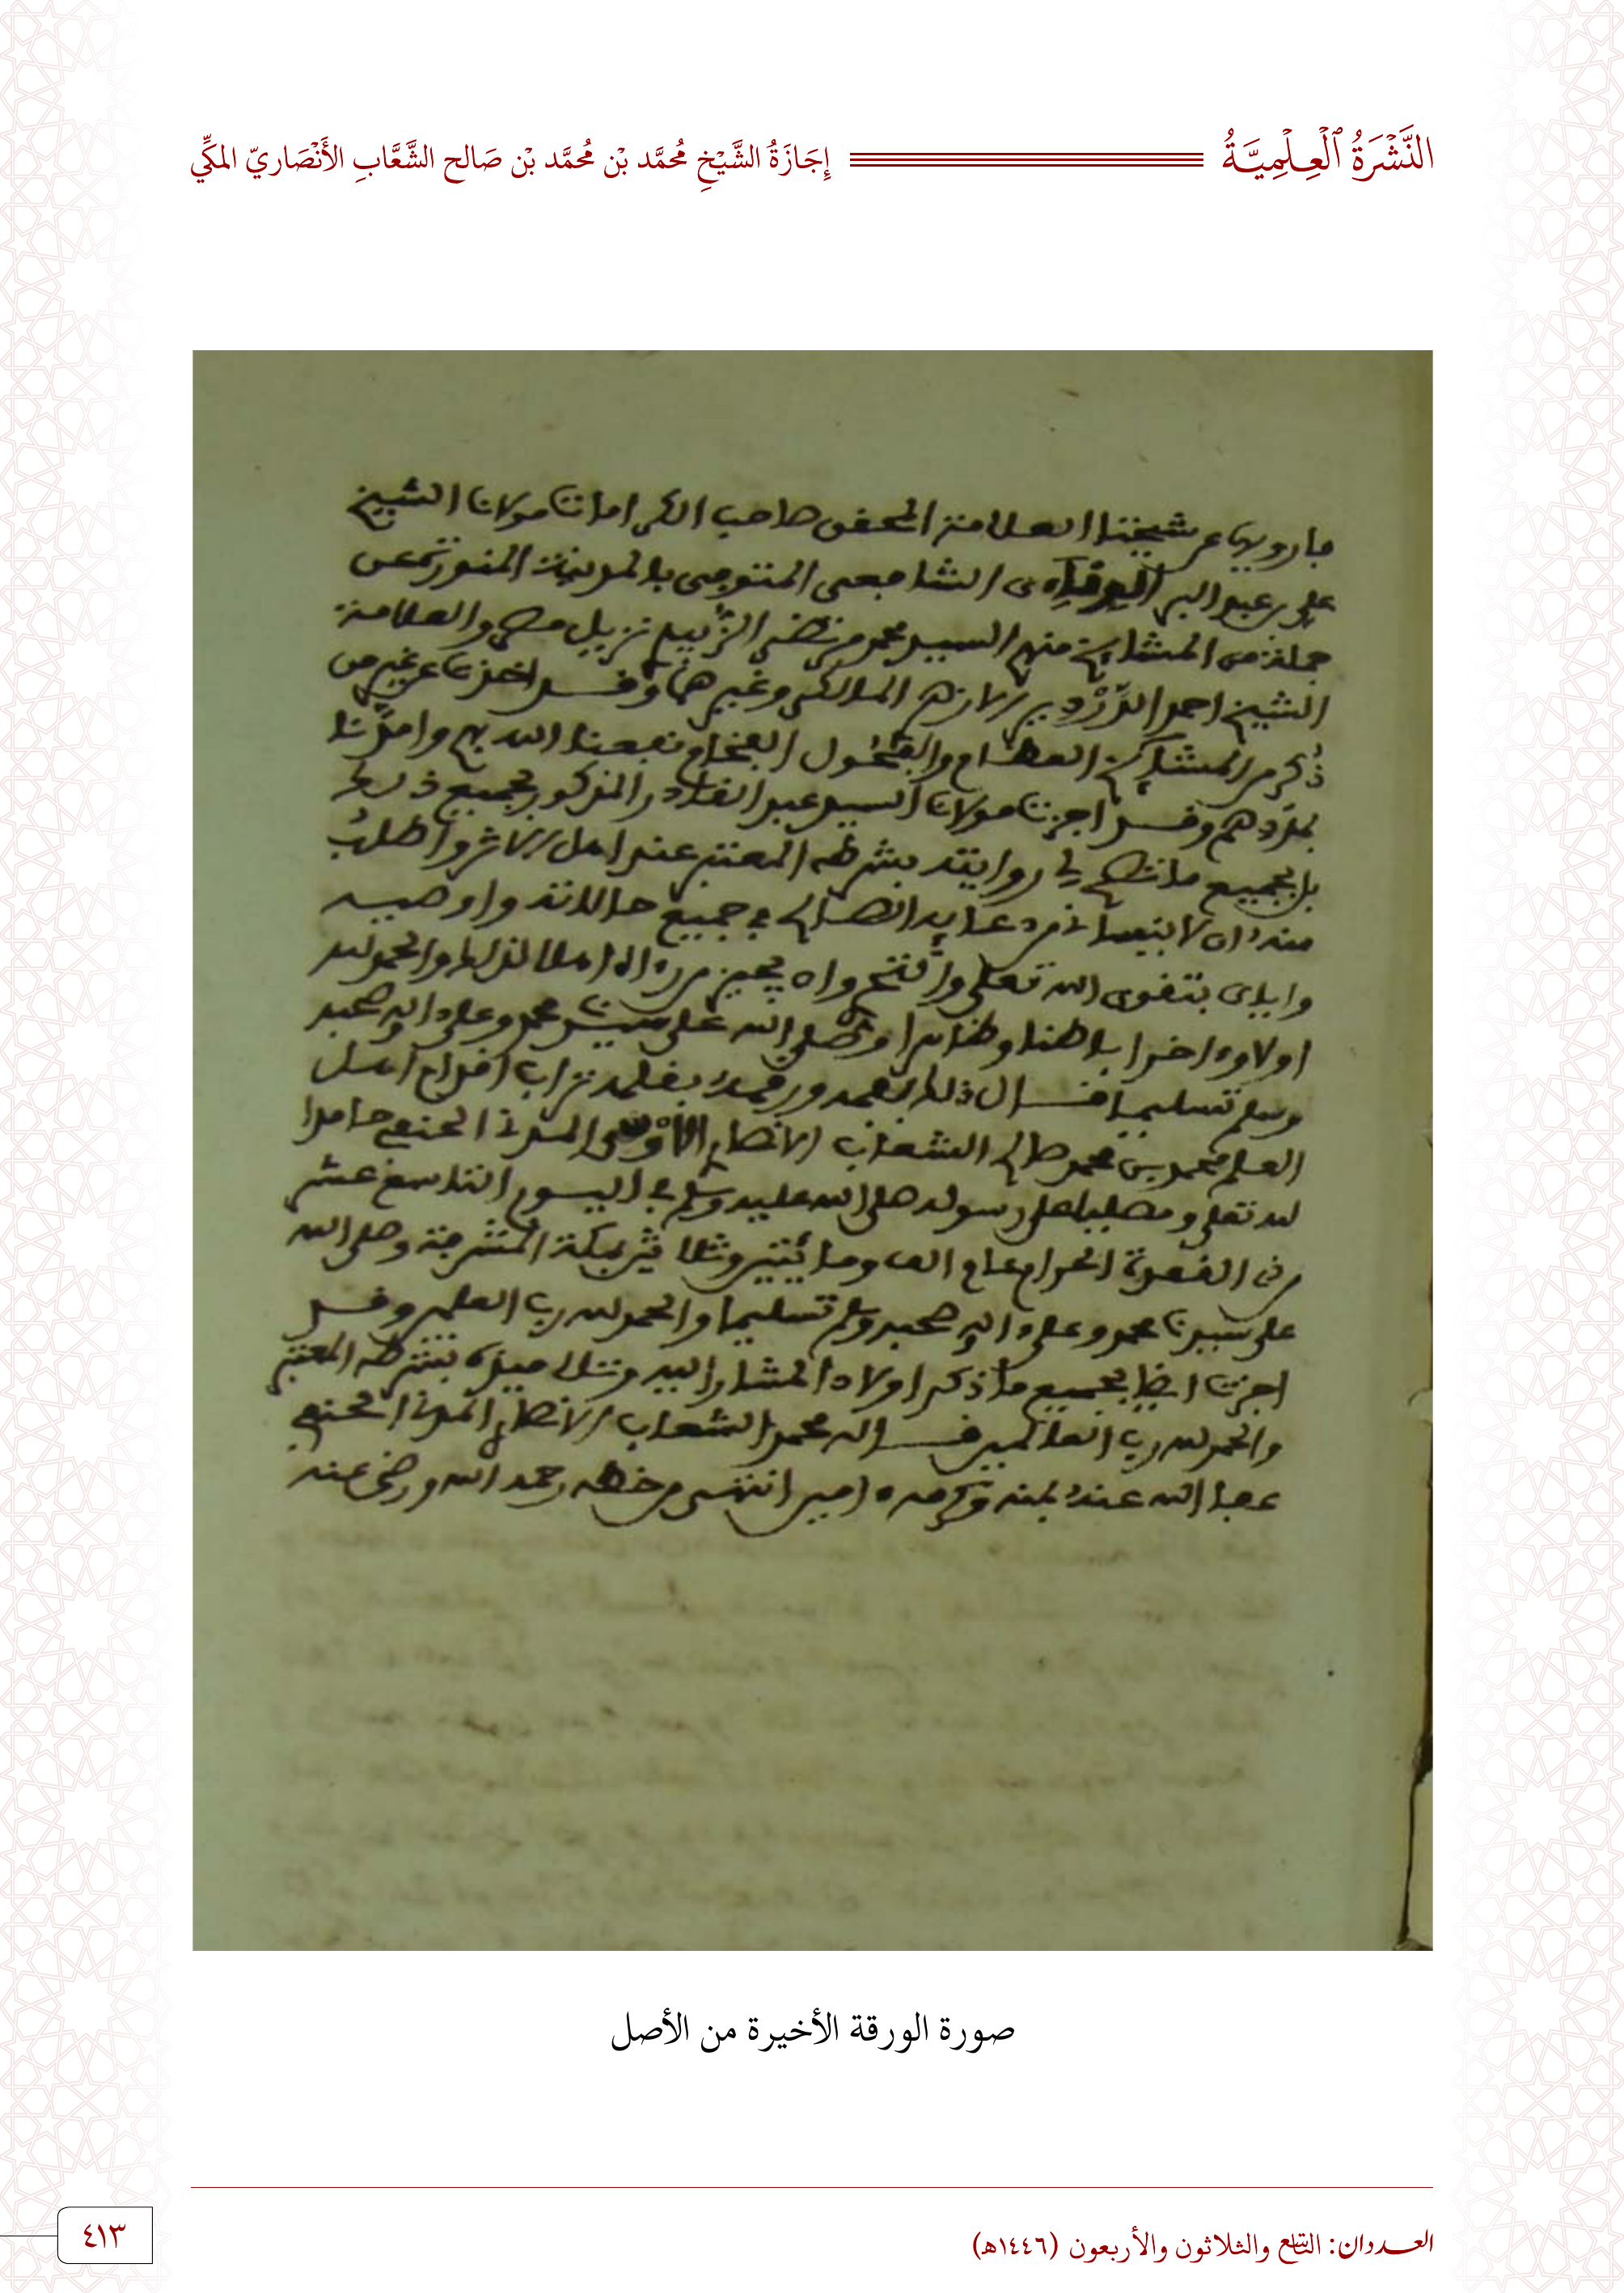 النَّشْرَةُ الْعِلْمِيَّةُ
إِجَازَةُ الشَّيْخِ مُحَمَّد بْن مُحَمَّد بْن صَالح الشَّعَّابِ الأَنْصَاريّ المكِّي
فارويها عن شيخنا العلامة المحقق صاحب الكرامات مولانا الشيخ
علي بن عبد البر الشافعي المتوفى بالمدينة المنورة عن
جملة من المشايخ منهم السيد محمد مرتضى الزبيدي نزيل مصر والعلامة
الشيخ احمد الدَّرْدير الازهري المالكي وغيرهما وقد اخذنا عن غير من
ذُكر من المشايخ العظام والفحول الفخام نفعنا الله بهم وامدَّنا
بمدَدهم وقد اجزنا مولانا السيد عبد القادر المذكور بجميع ذلك
بل بجميع ما تصح لي روايته بشرطه المعتبر عند اهل الاثر واطلبُ
منه ان لا ينساني من دعايه الصالح في جميع حالاته واوصيه
واياي بتقوى الله تعلى وان يجيز من راه اهلا لذلك والحمد لله
اولا واخرا باطنا وظاهرا وصلى الله على سيدنا محمد وعلى اله وصحبه
وسلم تسليما قال ذلك بفمه ورقمه بقلمه تراب اقدام اهل
العلم محمد بن محمد صالح الشعاب الانصاري الاوسي المدني الحنفي حامدا
لله تعلى ومصليا على رسوله صلى الله عليه وسلم في اليوم التاسع عشر
من ذي القعدة الحرام عام الف ومائتين وثلاثين بمكة المشرفة وصلى الله
على سيدنا محمد وعلى اله وصحبه وسلم تسليما والحمد لله رب العلمين وقد
اجزنا ايضا بجميع ما ذكر اولاد المشار اليه وتلاميذه بشرطه المعتبر
والحمد لله رب العالمين قاله محمد الشعاب الانصاري المدني الحنفي
عفا الله عنه بمنه وكرمه امين انتهى من خطه رحمه الله ورضي عنه
صورة الورقة الأخيرة من الأصل
العـــددان: التاسع والثلاثون والأربعون (١٤٤٦هـ)
٤١٣